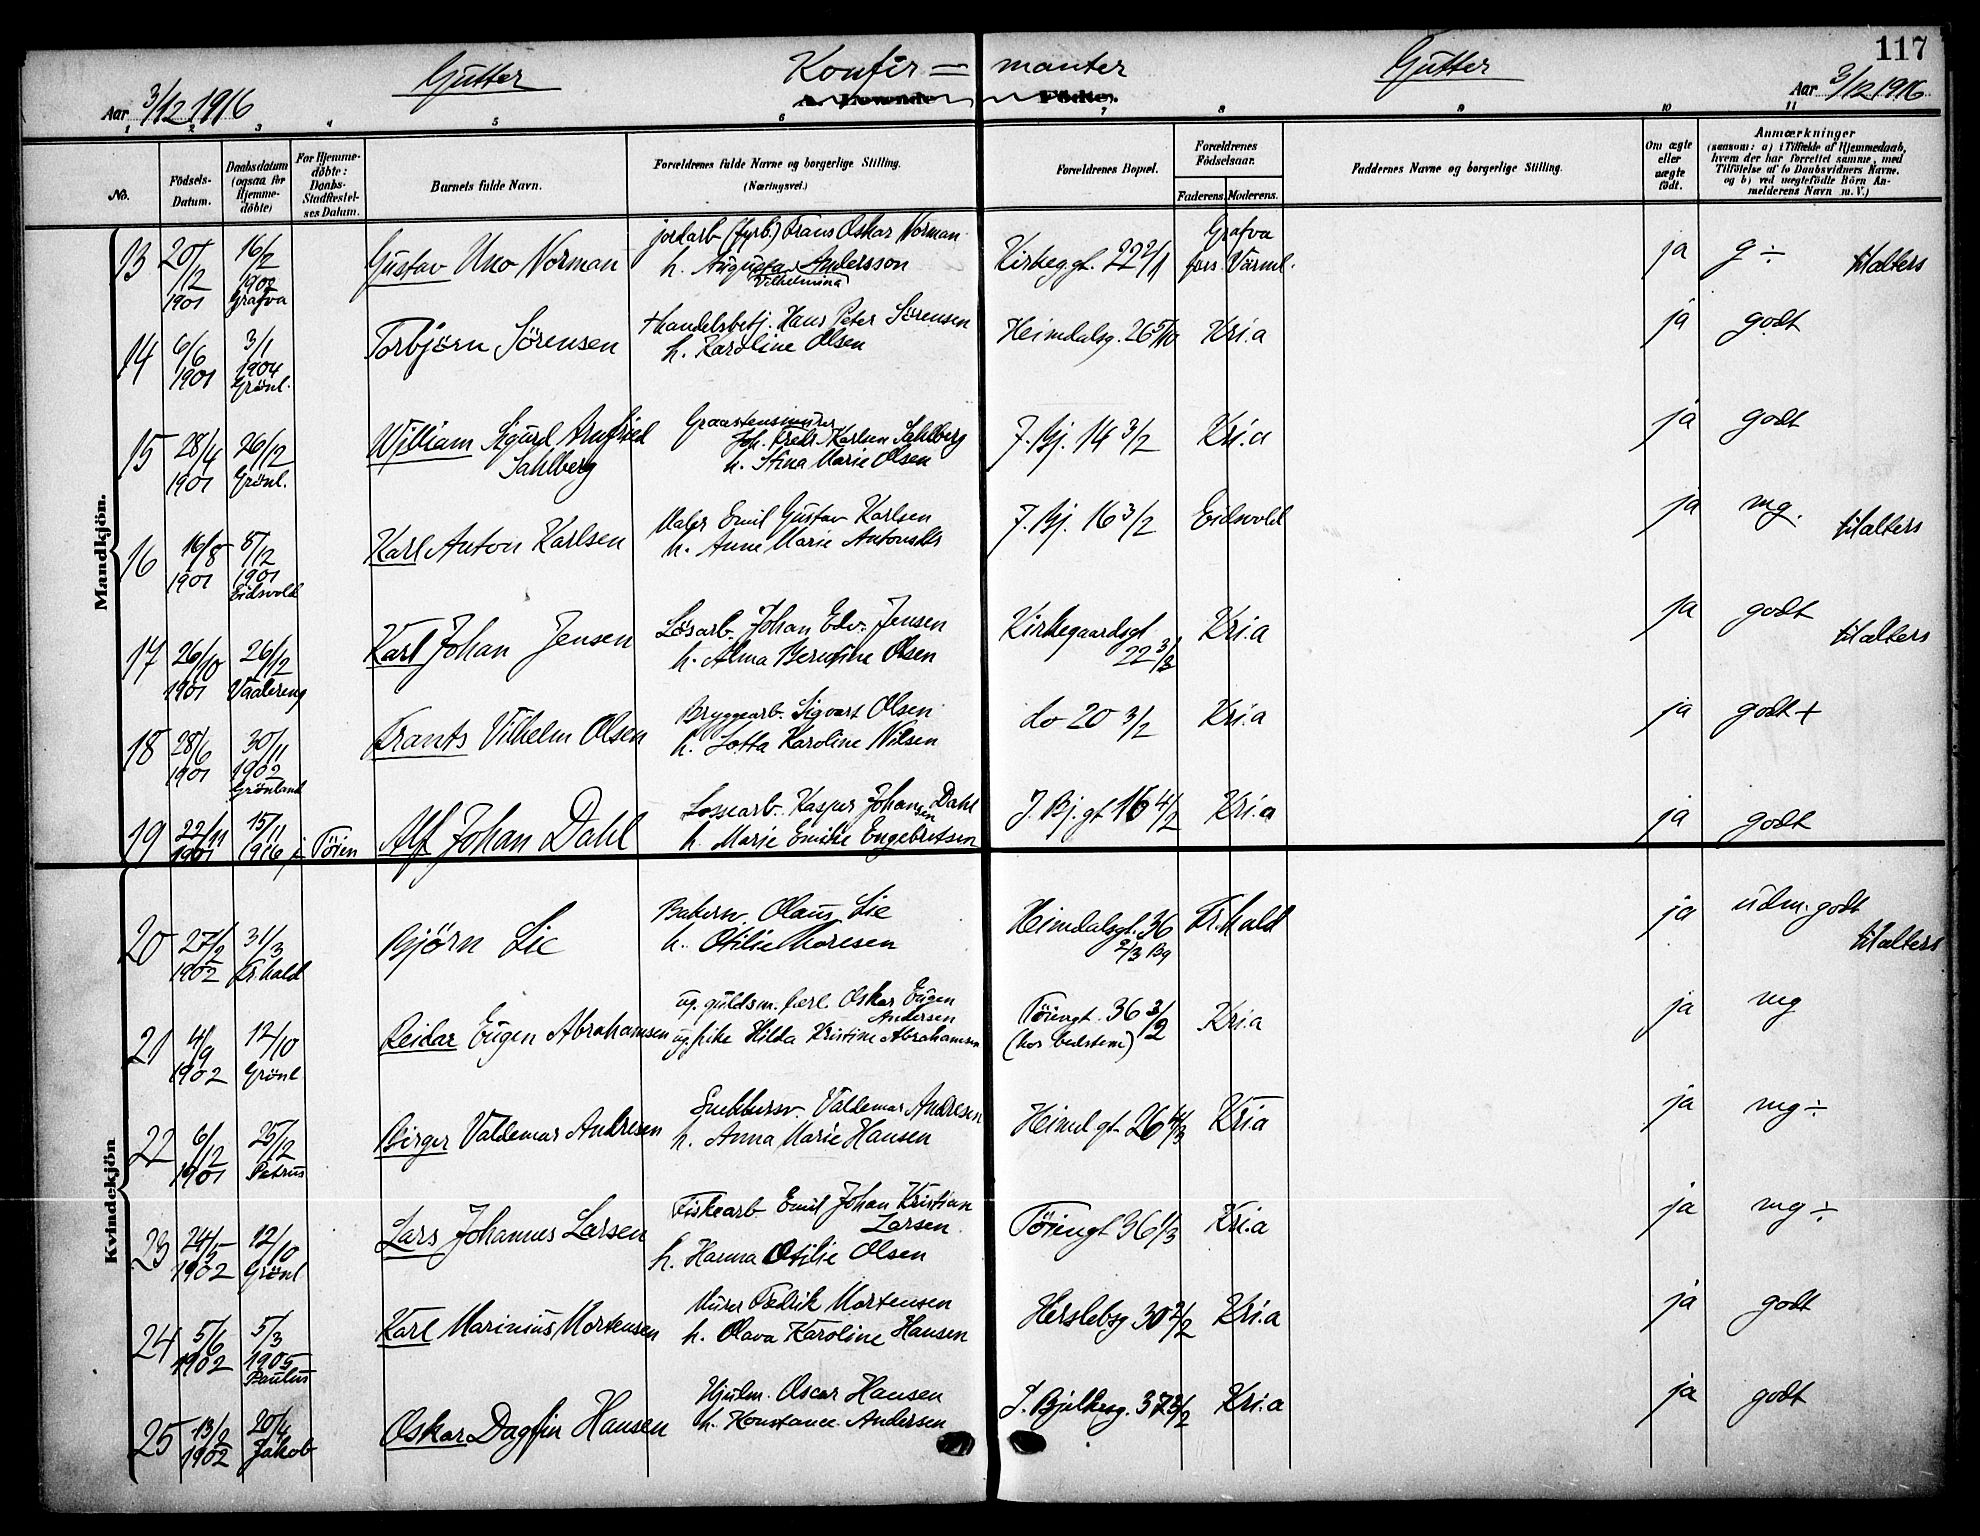 117
Gutter
Konfir = manter
Gutter
Aar 3/12 1916
A. Levende Födte.
Aar 3/12 1916
1 2 3 4 5 6 7 8 9 10 11
No.
Födsels-Datum.
Daabsdatum (ogsaa for Hjemmedöbte)
For Hjemmedöbte: Daabs-Stadfæstelses Datum.
Barnets fulde Navn.
Forældrenes fulde Navne og borgerlige Stilling. (Næringsvei.)
Forældrenes Bopæl.
Forældrenes Födselsaar.
Faderens. Moderens.
Faddernes Navne og borgerlige Stilling.
Om ægte eller uægte født.
Anmærkninger
(saasom: a) i Tilfælde af Hjemmedaab, hvem der har forrettet samme, med Tilföielse af to Daabsvidners Navne. og b) ved uægtefödte Börn Anmelderens Navn m. V.)
Mandkjön.
13 20/12 1901 16/2 1902 Grafva Gustav Uno Norman jordarb (fyrb.) Frans Oskar Norman
h. Augusta Vilhelmina Andersson Kirkeggt. 22 2/1 Grafva fors. Värml. ja g ÷ til alters
14 6/6 1901 3/1 1904 Grönl. Torbjörn Sörensen + handelsbetj. Hans Peter Sörensen
h. Karoline Olsen Heimdalsg. 26 5/10 Kri.a ja godt
15 28/4 1901 26/12 Grönl. William Sigurd Arnfried Sahlberg Graastensmurer
Joh. Fredr. Karlsen Sahlberg
h. Stina Marie Olsen J. Bj. 14 3/2 Kri.a ja godt
16 16/8 1901 8/12 1901 Eidsvold Karl Anton Karlsen Maler Emil Gustav Karlsen
h. Anne Marie J. Bj. 16 3/2 Eidsvold ja mg. til alters
17 26/10 1901 26/12 Vaalereng Karl Johan Jensen Løsarb. Johan Edv. Jensen
h. Alma Olsen Kirkegaardsgt 22 3/3 Kri.a ja godt til alters
18 28/6 1901 30/11 1902 Grönland Frants Vilhelm Olsen Bryggearb. Sigvart Olsen
h. Lotta Karoline Nilsen do 20 3/2 Kri.a ja godt +
19 22/11 1901 15/11 1916 i Töien Alf Johan Dahl Lossearb. Kasper Johansen Dahl
h. Marie Emilie Engebretsen J. Bj. gt 16 4/2 Kri.a ja godt
Kvindekjön
20 27/2 1902 31/3 Fr.hald Björn Lie Bakersv. Olaus Lie
h. Otilie Heimdalsgt. 36 2/3 Bg Fr.hald ja udm. godt til alters
21 4/9 1902 12/10 Grönl Reidar Eugen Abrahamsen ug. guldsm. lærl. Oskar Eugen Andersen
ug. pike Hilda Kristine Abrahamsen Töiengt. 36 3/2 (hos bedstem) Kri.a ja mg
22 6/12 1901 25/12 Petrus Birger Valdemar Andresen Snekkersv. Valdemar Andresen
h. Anna Marie Hansen Heimd gt. 26 4/3 Kri.a ja mg ÷
23 24/5 1902 12/10 Grönl Lars Johannes Larsen Fiskearb Emil Johan Kristian Larsen
h. Hanna Otilie Olsen Töiengt 36 1/3 Kri.a ja mg ÷
24 5/6 1902 5/3 1905 Paulus Karl Marinius Mortensen Murer Fredrik Mortensen
h. Olava Karoline Hansen Herslebsg 30 2/2 Kri.a ja godt
25 13/2 1902 20/4 Jakob Oskar Dagfin Hansen Hjulm. Oscar Hansen
h. Konstance Andersen J. Bjelkesg. 37 3/2 Kri.a ja godt